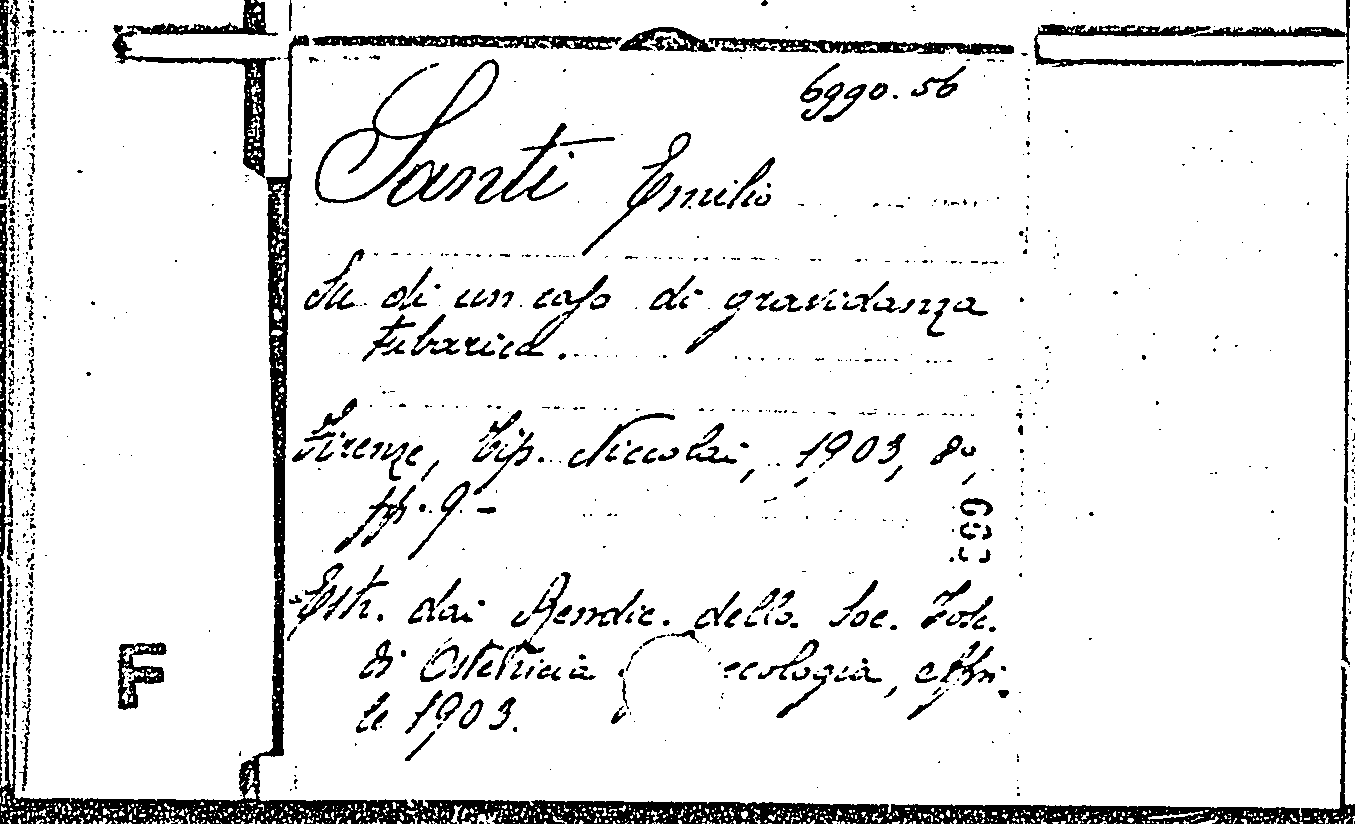 6990.56
Santi Emilio
Su di un caso di gravidanza
tubarica.
Firenze, Tip. Niccolai, 1903, 8°,
pp. 9. -
Estr. dai Rendic. della Soc. Tosc.
di Ostetricia ecologia, Apri-
le 1903.
F